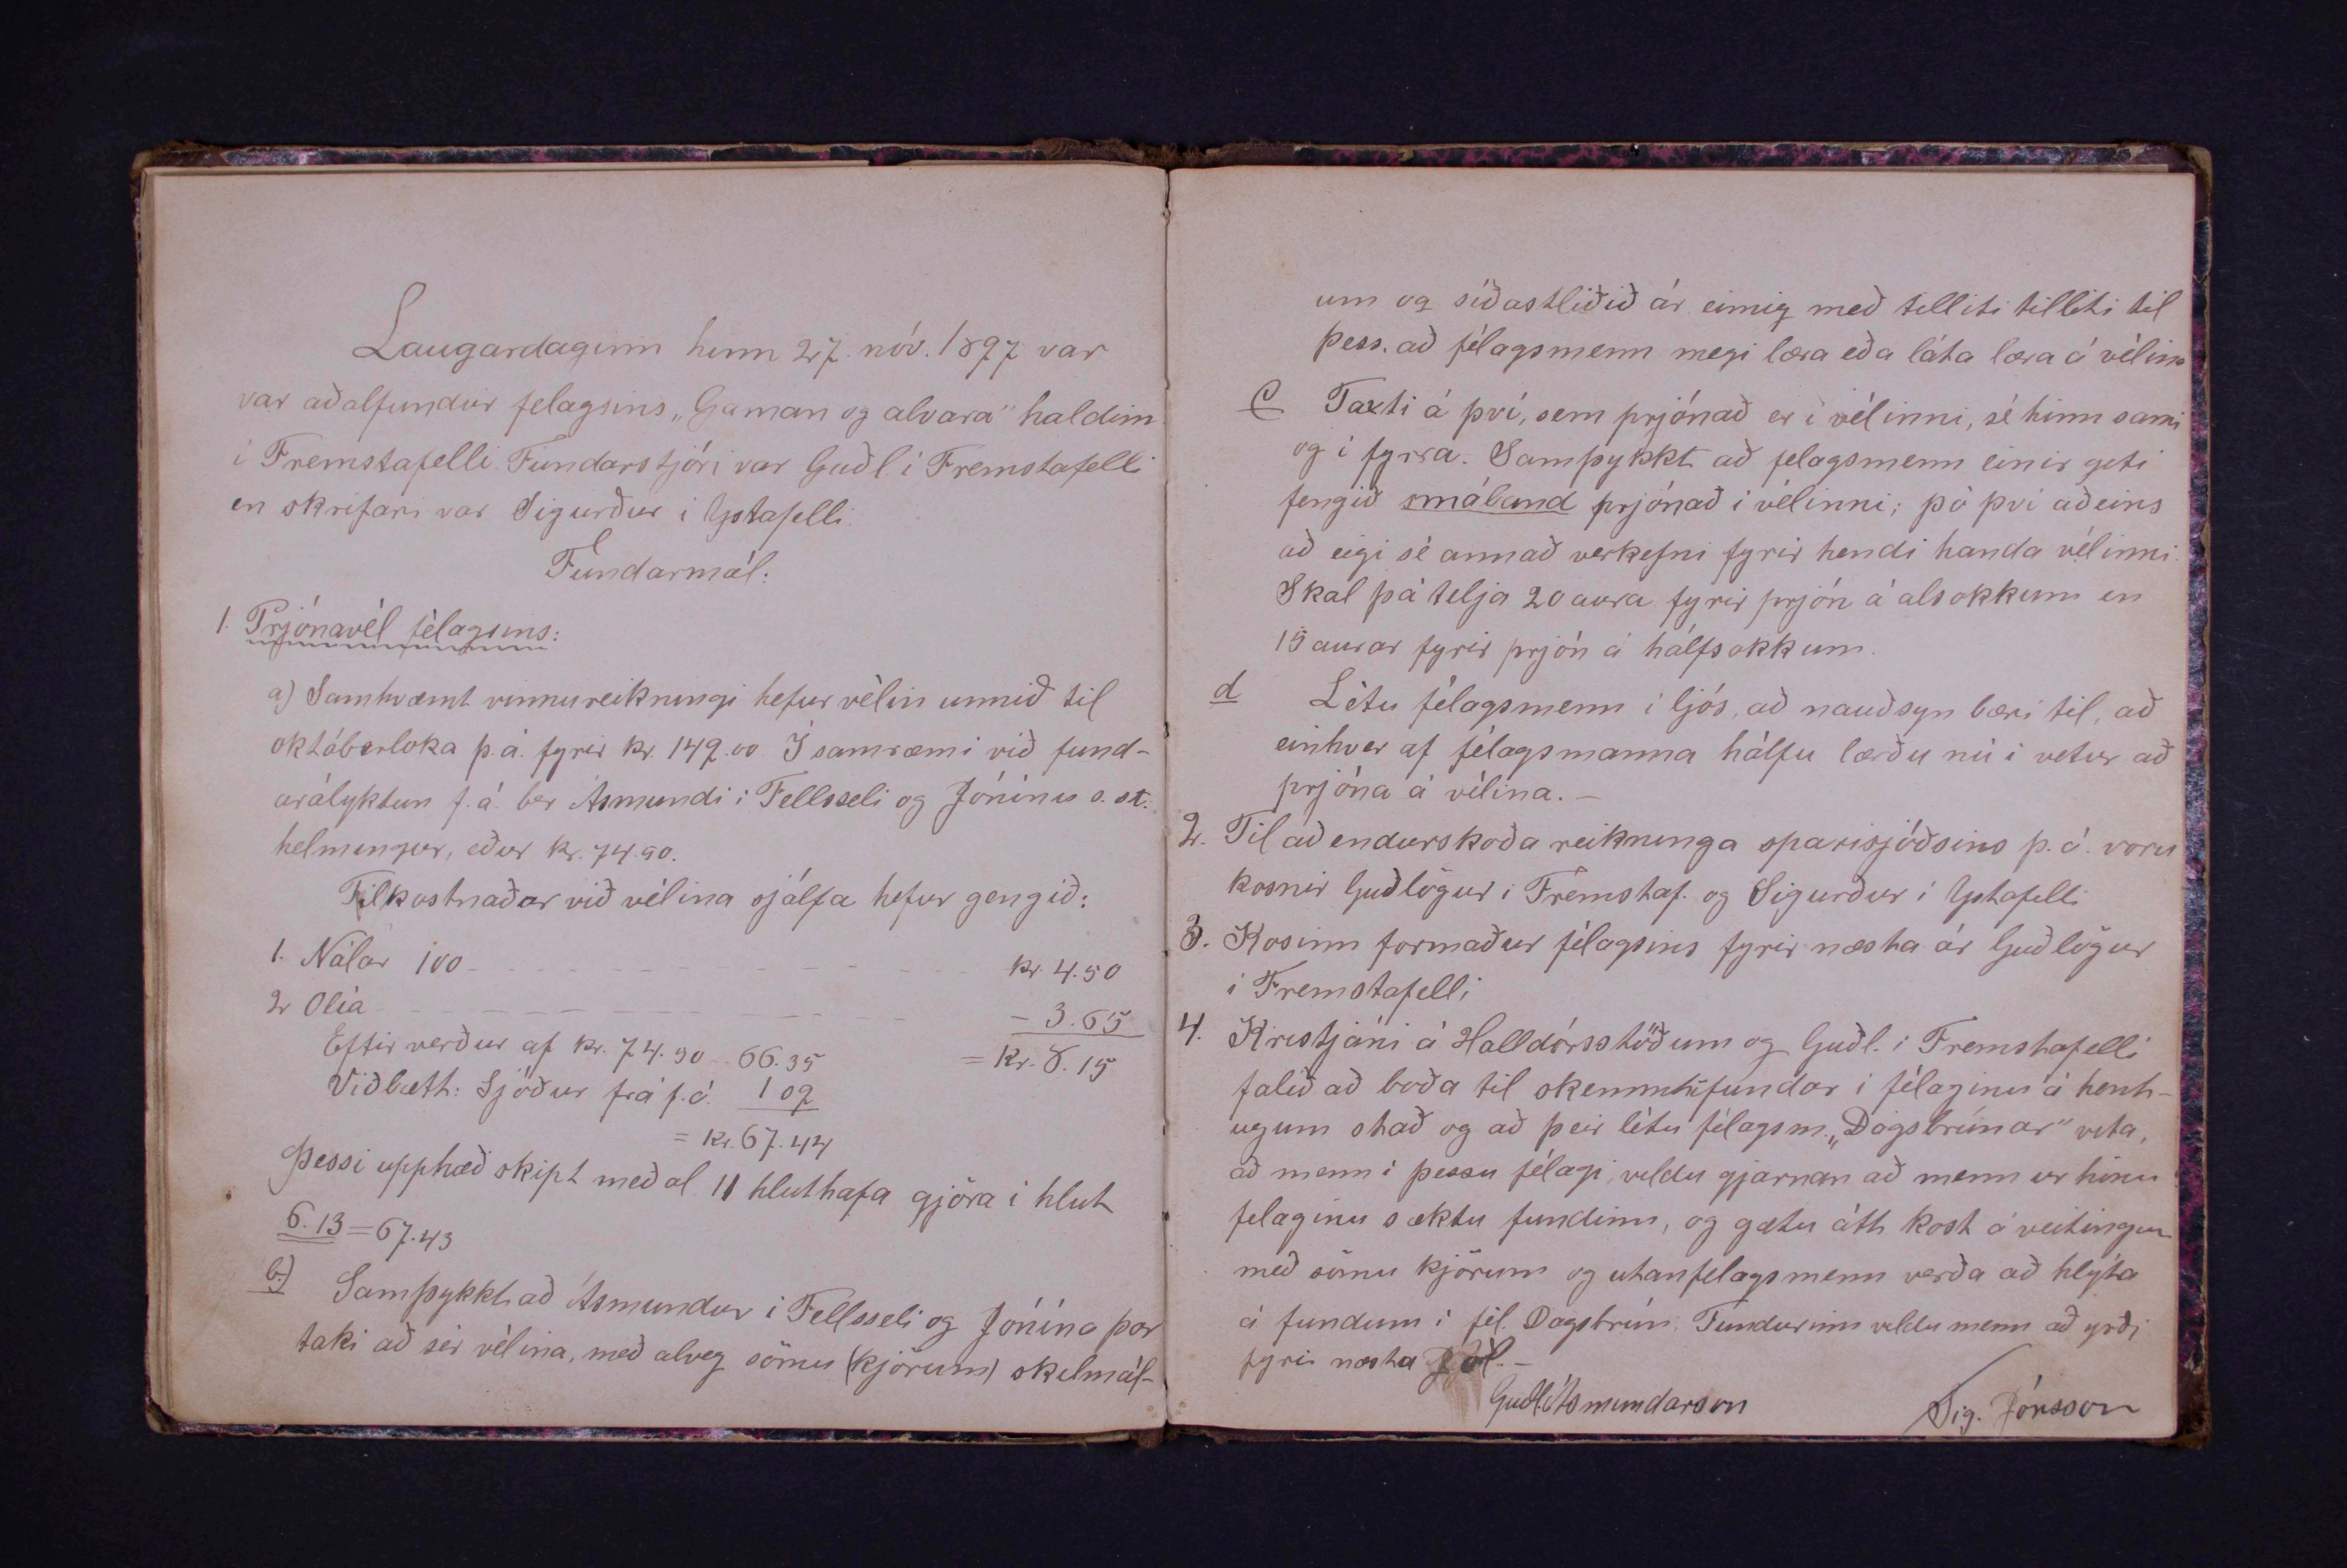 Laugardaginn hinn 27. nóv. 1897 var
var aðalfundur felagsins „Gaman og alvara" haldinn
í Fremstafelli. Fundarstjóri var Guðl. í Fremstafelli
en skrifari var Sigurður í Ystafelli.
Fundarmál:
1. Prjónavél félagsins:
a) Samkvæmt vinnureikningi hefur vélin unnið til
októberloka þ.á. fyrir kr. 149.00. Í samræmi við fund-
arályktun f.á. ber Ásmundi í Fellsseli og Jónínu s.st.
helmingur, eður kr. 74.50.
Tilkostnaðar við vélina sjálfa hefur gengið:
1. Nálar 100 - - - kr. 4.50
2 Olía - - - - 3.65
= kr. 8.15
Eftir verður af kr. 74.50 - 66.35
Viðbætt: Sjóður frá f.á. 1 09
= kr. 67.44
Þessi upphæð skipt meðal 11 hluthafa gjöra í hlut
6.13 = 67.43
b) Samþykkt að Ásmundur í Fellsseli og Jónína þar
taki að sér vélina, með alveg sömu (kjörum) skilmál-
um og síðastliðið ár einnig með tilliti tilliti til
þess. að félagsmenn megi læra eða láta læra á vélina
c Taxti á því, sem prjónað er í vélinni, sé hinn sami
og í fyrra. Samþykkt að felagsmenn einir geti
fengið smáband prjónað í vélinni; þó því aðeins
að eigi sé annað verkefni fyrir hendi handa vélinni.
Skal þá telja 20 aura fyrir prjón á alsokkum en
15 aurar fyrir prjón á hálfsokkum.
d Létu félagsmenn í ljós, að nauðsyn bæri til, að
einhver af félagsmanna hálfu lærðu nú í vetur að
prjóna á vélina. —
2. Til að endurskoða reikninga sparisjóðsins þ.á. voru
kosnir Guðlögur í Fremstaf. og Sigurður í Ystafelli
3. Kosinn formaður félagsins fyrir næsta ár Guðlögur
í Fremstafelli
4. Kristjáni á Halldórsstöðum og Guðl. í Fremstafelli
falið að boða til skemmtifundar í félaginu á hent-
ugum stað og að þeir létu félagsm. „Dagsbrúnar" vita,
að menn í þessu félagi, vildu gjarnan að menn úr hinu
felaginu sæktu fundinn, og gætu átt kost á veitingum
með sömu kjörum og utanfelagsmenn verða að hlýta
á fundum í fél. Dagsbrún. Fundurinn vildu menn að yrði
fyrir næstu Jól. —
Guðl. Ásmundarson
Sig. Jónsson